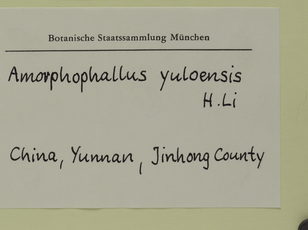 Botanische Staatssammlung München
Amorphophallus yuloensis
H.Li
China, Yunnan, Jinhong County